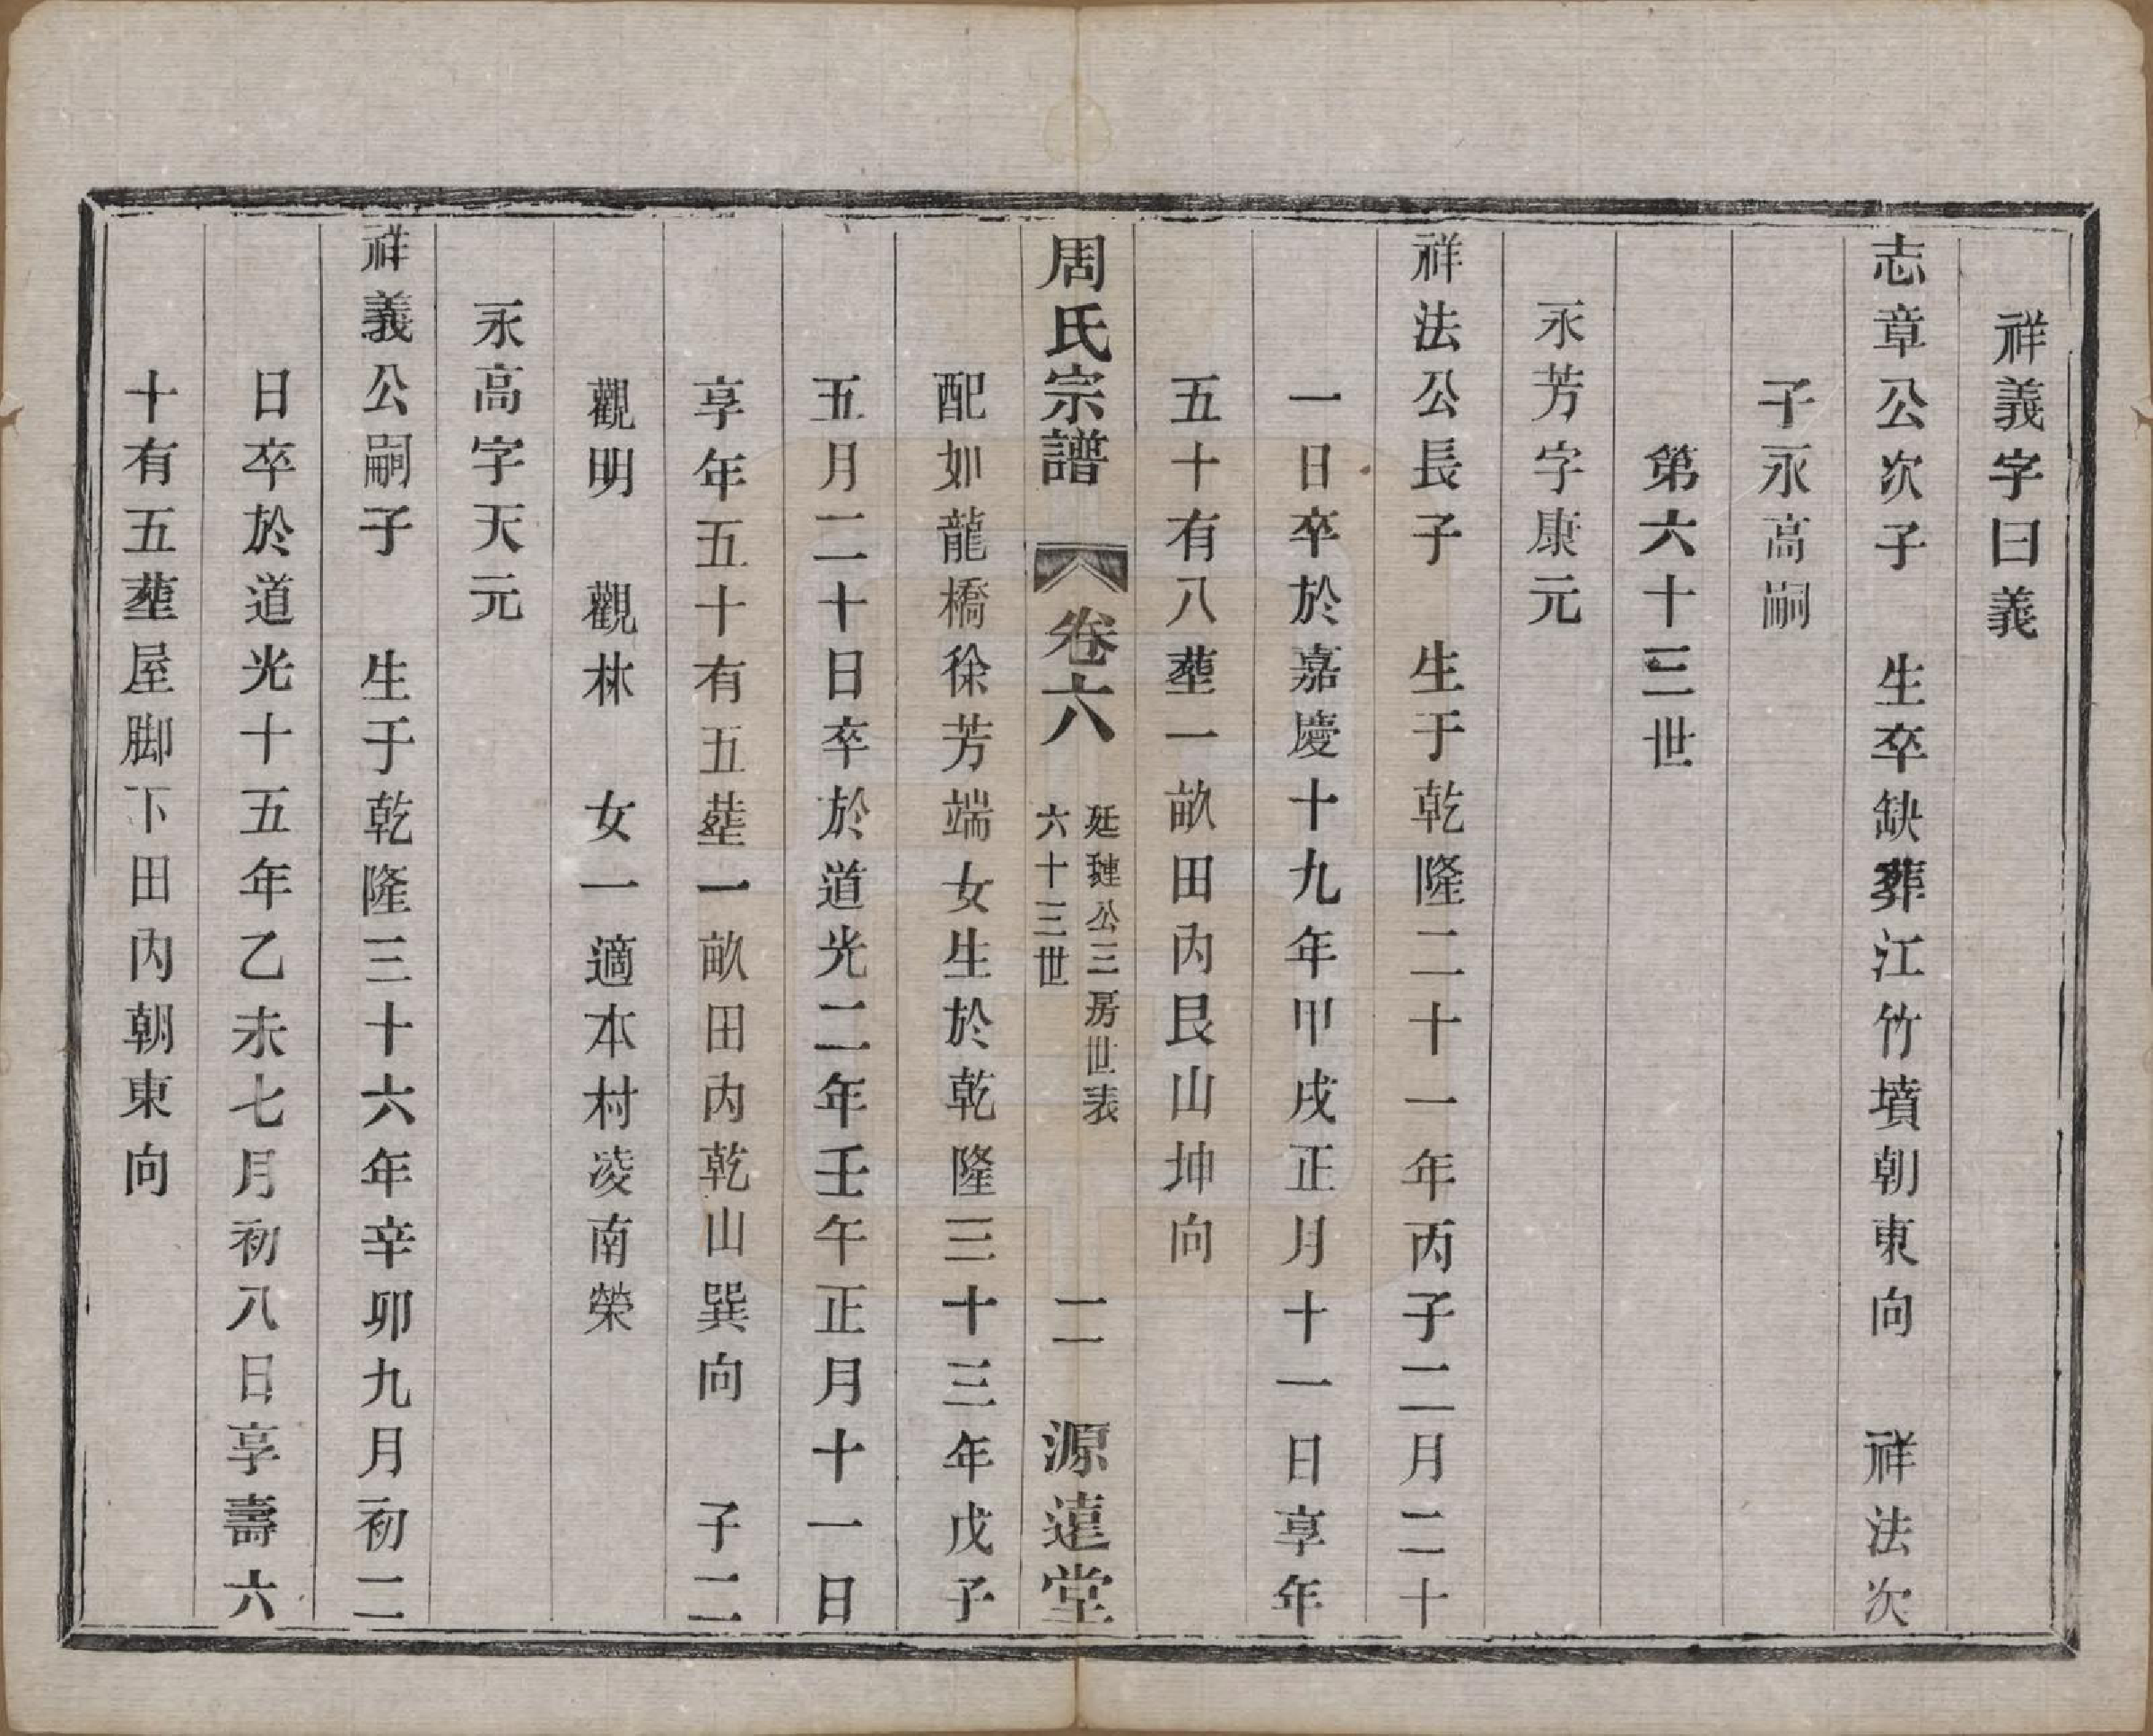 祥義字曰義
志章公次子　生卒缺葬江竹墳朝東向　祥法次
子永高嗣
第六十三世
永芳字康元
祥法公長子　生于乾隆二十一年丙子二月二十
一日卒於嘉慶十九年甲戌正月十一日享年
五十有八塟一畝田內艮山坤向
周氏宗譜　卷六　廷璉公三房世表　六十三世　二　源遠堂
配如龍橋徐芳端女生於乾隆三十三年戊子
五月二十日卒於道光二年壬午正月十一日
享年五十有五塟一畝田內乾山巽向　子二
觀明　觀林　女一適本村凌南榮
永高字天元
祥義公嗣子　生于乾隆三十六年辛卯九月初二
日卒於道光十五年乙未七月初八日享壽六
十有五塟屋脚下田內朝東向